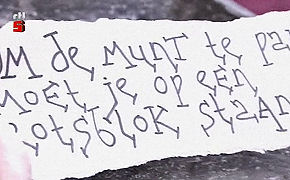 OM de MUNT te pa
MOET je OP EEN
OTSBLOK STAAN